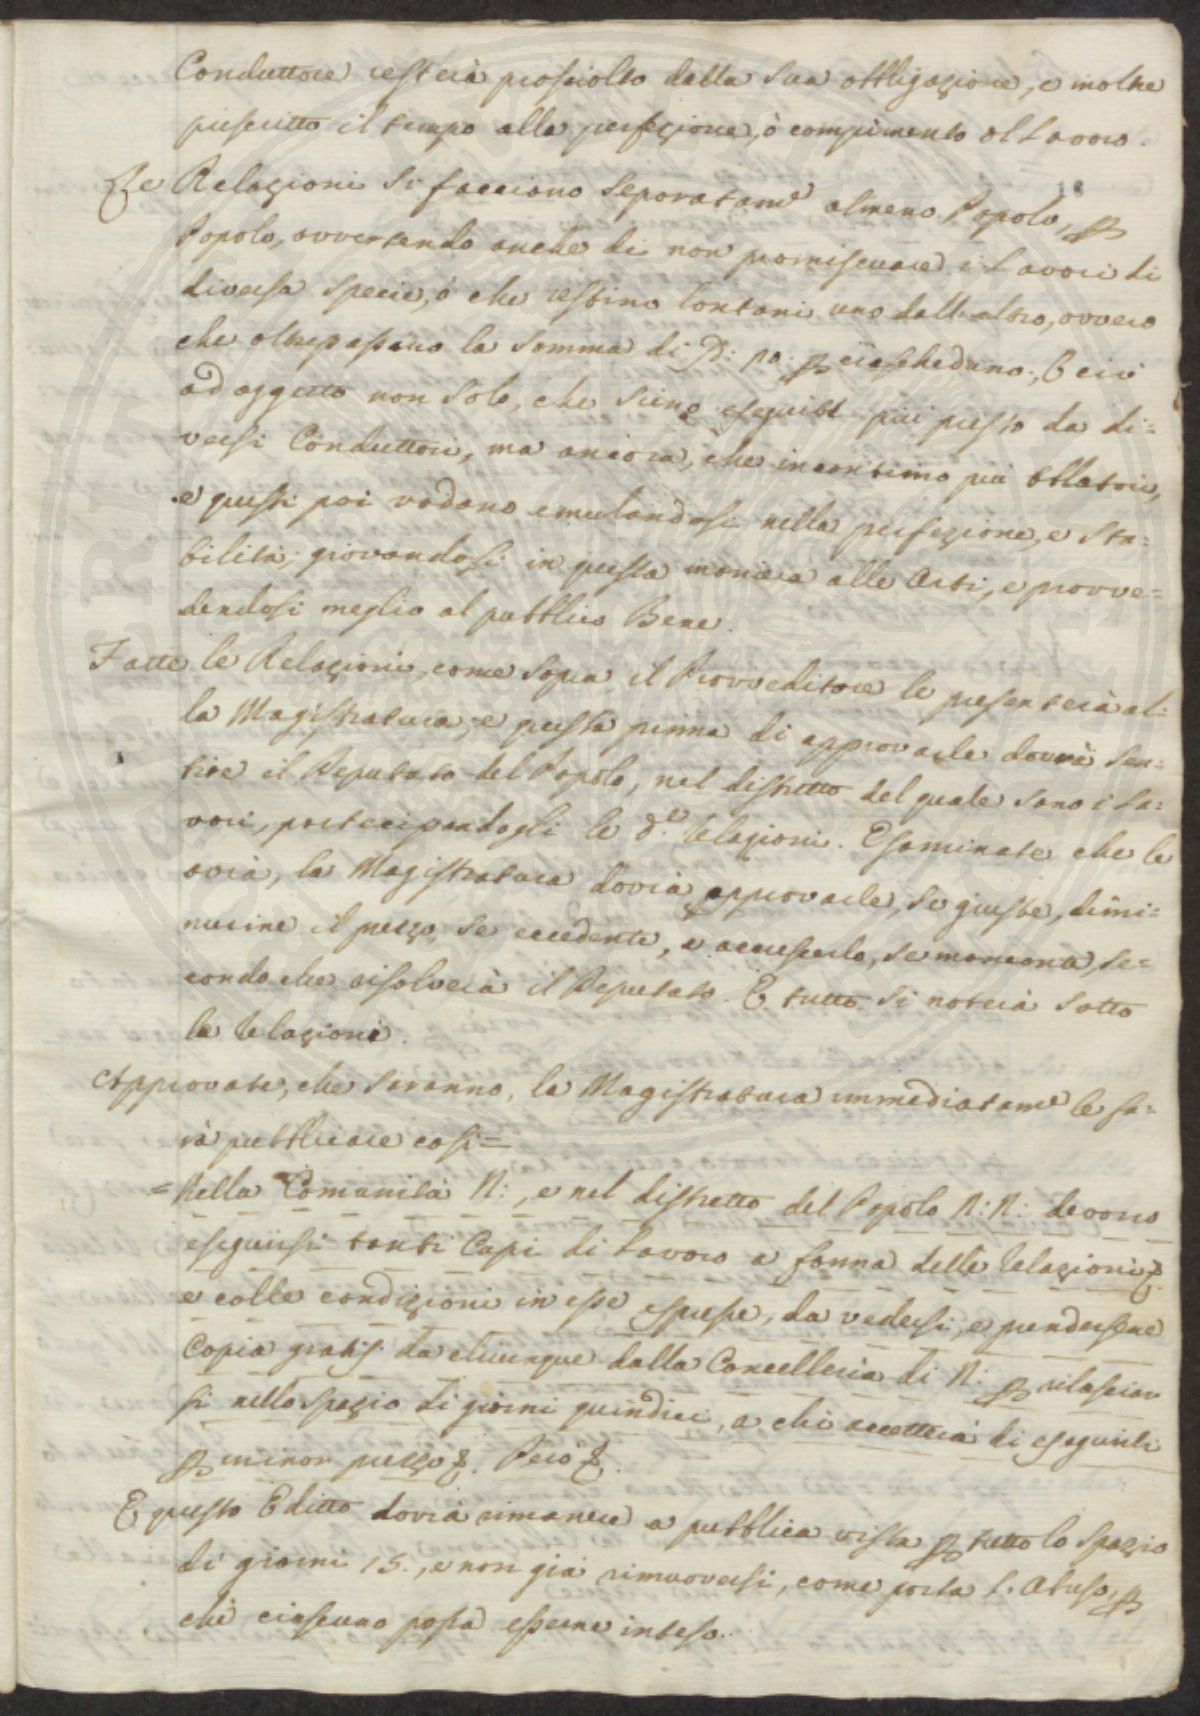 Conduttore resterà prosciolto dalla sua obbligazione, e inoltre
prescritto il tempo alla perfezione, ò compimento al Lavoro.
18
Le Relazioni si facciano separatam.e almeno Popolo, p
Popolo, avvertendo anche di non promiscuare i Lavori di
diversa specie, ò che restino lontani uno dall'altro, ovvero
che oltrepassino la somma di D: 10: p ciascheduno; E ciò
ad oggetto non solo, che sieno eseguiti più presto da di=
versi Conduttori, ma ancora, che incontrino più oblatori,
e questi poi vadano emulandosi nella perfezione, e sta=
bilità; giovandosi in questa maniera alle Arti, e provve=
dendosi meglio al pubblico Bene.
Fatte le Relazioni, come sopra il Provveditore le presenterà al=
la Magistratura, e questa prima di approvarle dovrà sen=
tire il Deputato del Popolo, nel distretto del quale sono i La=
vori, partecipandogli le d.e relazioni. Esaminate che le
avrà, la Magistratura dovrà approvarle, se giuste, dimi=
nuirne il prezzo, se eccedenti, e accrescerlo, se mancanti, se=
condo che risolverà il Deputato. E tutto si noterà sotto
la relazione.
Approvate, che saranno, la Magistratura immediatam.e le fa=
rà pubblicare così=
=Nella Comunità N:, e nel distretto del Popolo N:N: devono
eseguirsi tanti Capi di Lavoro a forma delle relazioni &.
e colle condizioni in esse espresse, da vedersi, e prendersene
Copia gratis da chiunque dalla Cancelleria di N: p rilasciar
si nello spazio di giorni quindici, a chi accetterà di eseguirli
p minor prezzo &. Però &.
E questo Editto dovrà rimanere a pubblica vista p tutto lo spazio
di giorni 15., e non già rimuoversi, come porta l'Abuso, p
chè ciascuno possa esserne inteso.